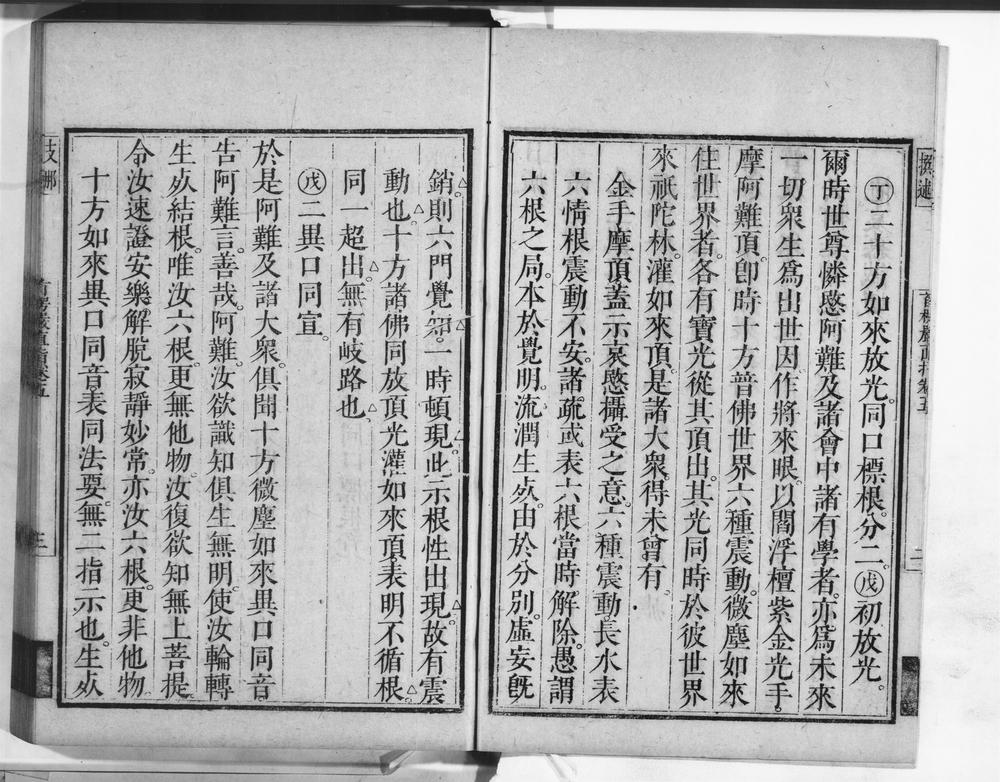 撰述
首楞嚴直指卷五
二
㊀丁二十方如來放光同口標根。分二。㊀戊初放光。
爾時世尊憐愍阿難及諸會中諸有學者。亦為未來
一切衆生為出世因。作將來眼。以閻浮檀紫金光手。
摩阿難頂。即時十方普佛世界六種震動。微塵如來
住世界者。各有寶光從其頂出。其光同時於彼世界
來祇陀林。灌如來頂。是諸大衆。得未曾有。
金手摩頂。蓋示哀愍攝受之意。六種震動。長水表
六情根震動不安。諸疏或表六根當時解除。愚謂
六根之局。本於覺明流潤生死。由於分別。虛妄既
銷。則六門覺知。一時頓現。此示根性出現。故有震
動也。十方諸佛同放頂光灌如來頂。表明不循根
同一超出。無有岐路也。
㊀戊二異口同宣。
於是阿難及諸大衆。俱聞十方微塵如來異口同音
告阿難言。善哉阿難。汝欲識知俱生無明。使汝輪轉
生死結根。唯汝六根。更無他物。汝復欲知無上菩提。
令汝速證安樂解脫寂靜妙常。亦汝六根。更非他物
十方如來異口同音。表同法要。無二指示也。生死
首楞嚴直指卷五
三